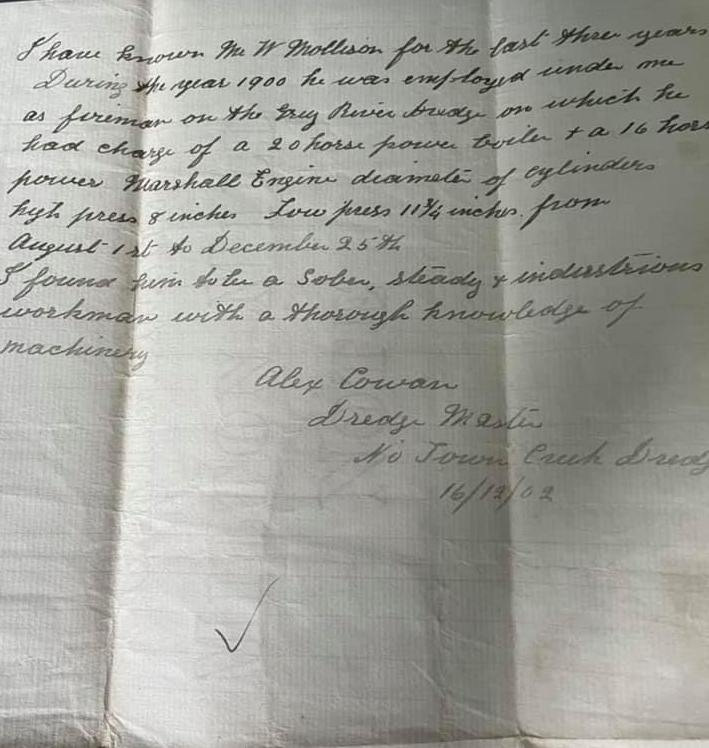 I have known Mr W Mollison for the last three years
During the year 1900 he was employed under me
as fireman on the Grey River dredge on which he
had charge of a 20 horse power boiler + a 16 hors
power Marshall Engine diameter of cylinders
high press 8 inches Low press 11¾ inches. from
August 1st to December 25th
I found him to be a Sober, steady & industrious
workman with a thorough knowledge of
machinery
Alex Cowan
Dredge Master
No Town Creek Dredg
16/12/02